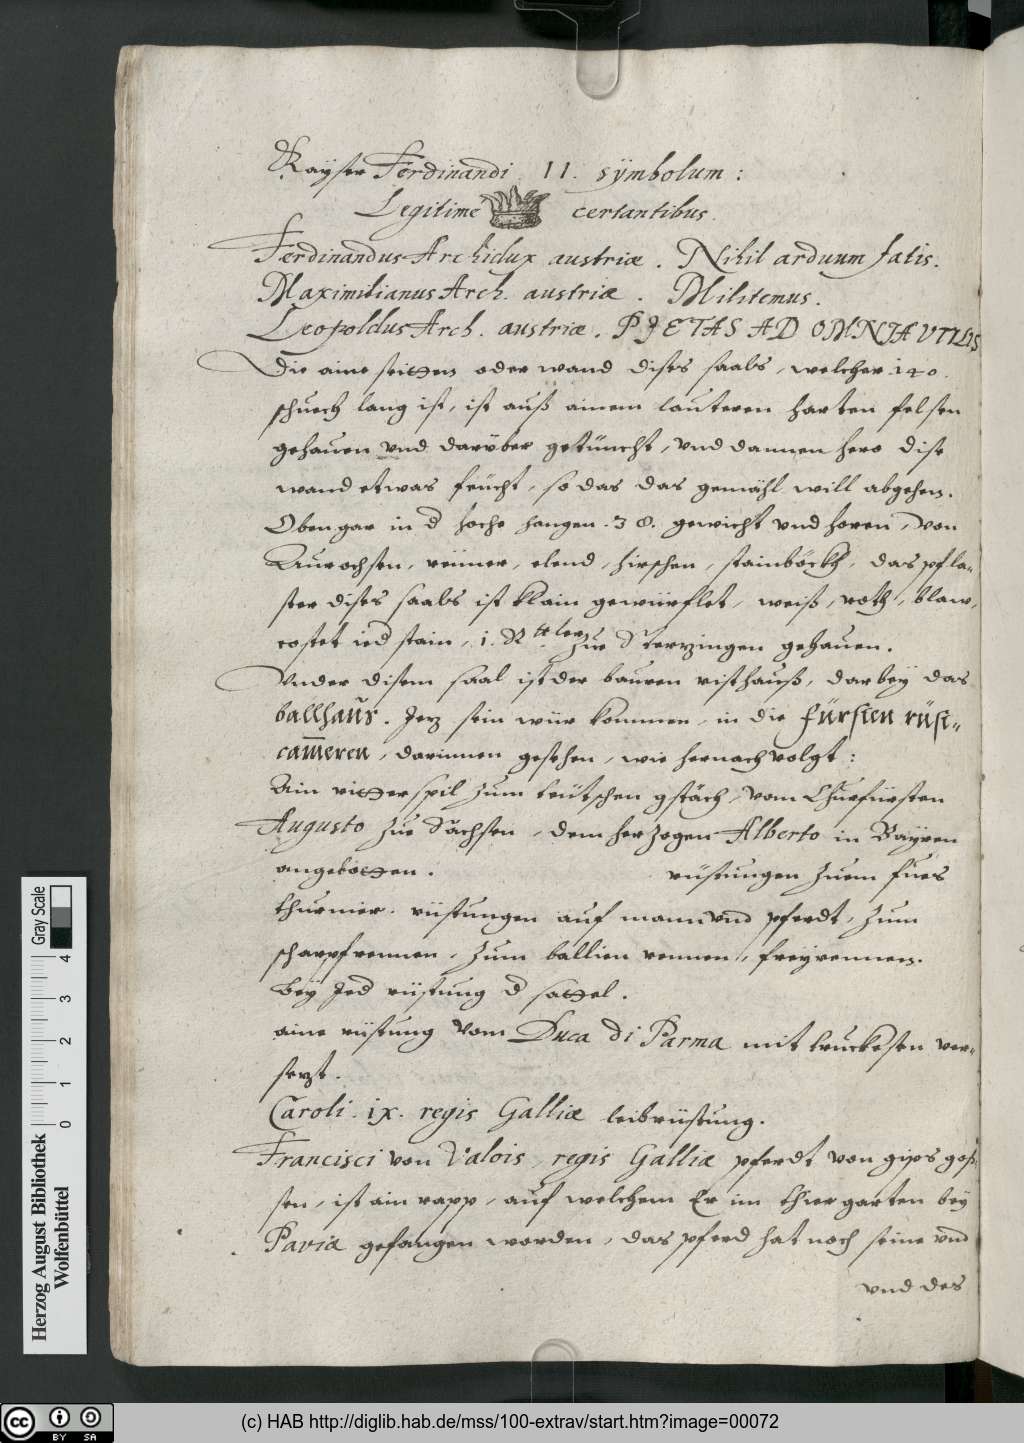 Kaÿser Ferdinandi II. sÿmbolum:
Legitime certantibus.
Ferdinandus Archidux austriæ. Nihil arduum fatis.
Maximilianus Arch. austriæ. Militemus.
Leopoldus Arch. austriæ. PIETAS AD OMNIA VTILIS
Die aine seitten oder wand dises saals, welcher 140.
schuech lang ist, ist auß ainem lauteren harten felsen
gehauen vnd darüber getüncht, vnd dannen hero dise
wand etwas feücht, so das das gemähl will abgehen.
Oben gar in d höche hangen 38. gewicht vnd horen, von
Aurochsen, reiner, elend, hirschen, stainböckh, das pfla-
ster dises saals ist klain gewürflet, weiß, roth, blaw,
costet ied stain, 1. zue Sterzingen gehauen.
Vnder disem saal ist der bauren risthauß, darbeÿ das
ballhaus. Jetz sein wür kommen, in die fürsten rüst-
cameren, darinnen gesehen, wie hernach volgt:
Ain ritterspil zum teütschen gstäch, vom Churfürsten
Augusto zue Sachsen, dem herzogen Alberto in Baÿren
angebotten. rüstungen zuem fues
thurnier. rüstungen auf mann vnd pferdt, zum
scharpfrennen, zum ballien rennen, freÿrennen.
Beÿ Jed rüstung d sattel.
aine rüstung vom Duca di Parma mit truckesen ver-
sezt.
Caroli. ix. regis Galliæ leibrüstung.
Francisci von Valois, regis Galliæ pferdt von gips goß-
sen, ist ain rapp, auf welchem Er im thiergarten beÿ
Paviæ gefangen worden, das pferd hat noch seine vnd
vnd des
Herzog August Bibliothek
Wolfenbüttel
0 1 2 3 4
Gray Scale
cc BY SA
(c) HAB http://diglib.hab.de/mss/100-extrav/start.htm?image=00072